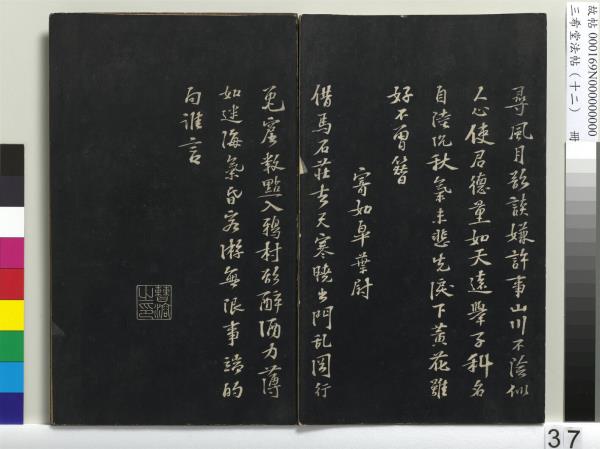 尋風月欲談嫌許事山川不險似
人心使君德量如天遠舉子科名
自陸沉秋氣未悲先淚下黃花雖
好不甭簪
寄如皋葉尉
借馬石莊去天寒曉出門乱罔行
兎窟数點入鴉村欲醉酒力薄
如迷海氣昏客游無限事端的
向誰言
故帖 000169N000000000
三希堂法帖（十二） 冊
37